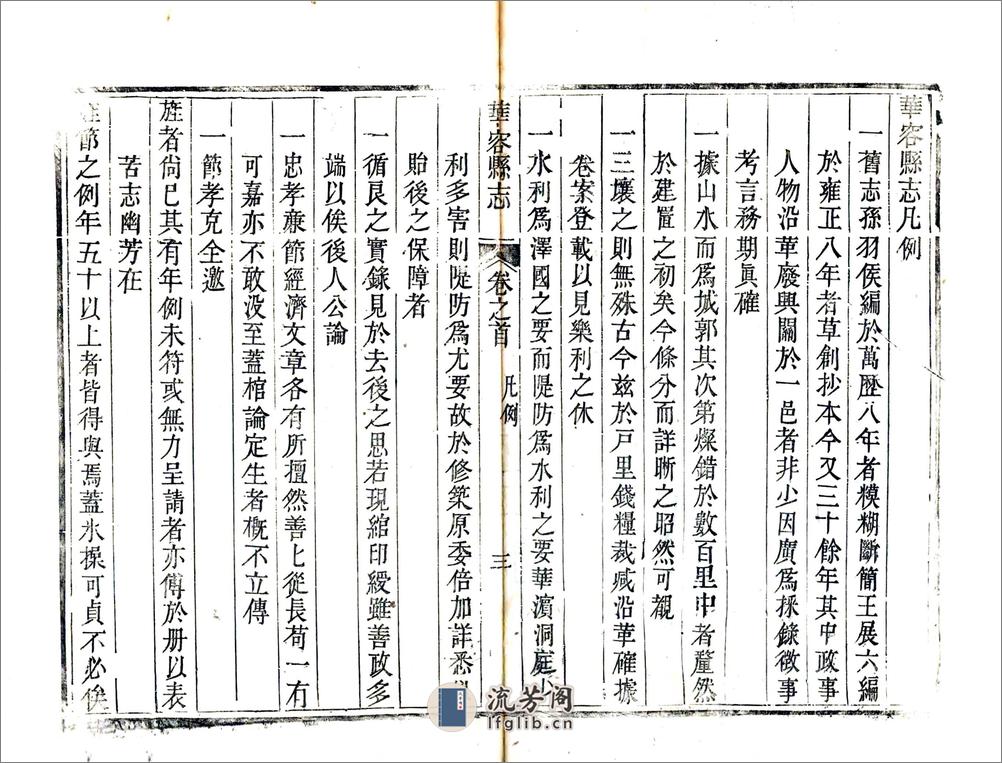 華容縣志凡例
一舊志孫羽侯編於萬歷八年者糢糊斷簡王展六編
於雍正八年者草創抄本今又三十餘年其中政事
人物沿革廢興關於一邑者非少因廣爲採錄徵事
考言務期眞確
一據山水而爲城郭其次第燦錯於數百里中者釐然
於建置之初矣今條分而詳晰之昭然可觀
一三壤之則無殊古今兹於戸里錢糧裁减沿革確據
卷案登載以見樂利之休
一水利爲澤國之要而隄防爲水利之要華濱洞庭少
華容縣志
卷之首
凡例
三
利多害則隄防爲尤要故於修築原委倍加詳悉
貽後之保障者
一循良之實錄見於去後之思若現綰印綬雖善政多
端以俟後人公論
一忠孝亷節經濟文章各有所擅然善匕從長苟一有
可嘉亦不敢没至蓋棺論定生者概不立傳
一節孝克全邀
旌者尙已其有年例未符或無力呈請者亦傳於册以表
苦志幽芳在
旌節之例年五十以上者皆得與焉蓋氷操可貞不必俟
流芳阁
lfglib.cn